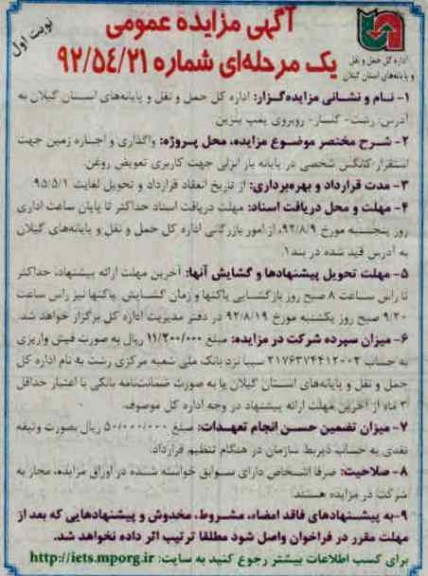 نوبت اول
آگهی مزایده عمومی
یک مرحله‌ای شماره ۹۲/۵۴/۲۱
اداره کل حمل و نقل
و پایانه‌های استان گیلان
۱- نام و نشانی مزایده‌گزار: اداره کل حمل و نقل و پایانه‌های استان گیلان به
آدرس: رشت- گلسار- روبروی پمپ بنزین
۲- شرح مختصر موضوع مزایده، محل پروژه: واگذاری و اجاره زمین جهت
استقرار کانکس شخصی در پایانه بار انزلی جهت کاربری تعویض روغن.
۳- مدت قرارداد و بهره‌برداری: از تاریخ انعقاد قرارداد و تحویل لغایت ۹۵/۵/۱.
۴- مهلت و محل دریافت اسناد: مهلت دریافت اسناد حداکثر تا پایان ساعت اداری
روز پنجشنبه مورخ ۹۲/۸/۹، از امور بازرگانی اداره کل حمل و نقل و پایانه‌های گیلان
به آدرس قید شده در بند۱.
۵- مهلت تحویل پیشنهادها و گشایش آنها: آخرین مهلت ارائه پیشنهاد، حداکثر
تا راس ساعت ۸ صبح روز بازگشایی پاکتها و زمان گشایش پاکتها نیز راس ساعت
۹/۲۰ صبح روز یکشنبه مورخ ۹۲/۸/۱۹ در دفتر مدیریت اداره کل برگزار خواهد شد.
۶- میزان سپرده شرکت در مزایده: مبلغ ۱۱/۲۰۰/۰۰۰ ریال به صورت فیش واریزی
به حساب ۲۱۷۶۳۷۴۴۱۲۰۰۲ سیبا نزد بانک ملی شعبه مرکزی رشت به نام اداره کل
حمل و نقل و پایانه‌های استان گیلان یا به صورت ضمانت‌نامه بانکی با اعتبار حداقل
۳ ماه از آخرین مهلت ارائه پیشنهاد در وجه اداره کل موصوف.
۷- میزان تضمین حسن انجام تعهدات: مبلغ ۵۰/۰۰۰/۰۰۰ ریال بصورت وثیقه
نقدی به حساب ذیربط سازمان در هنگام تنظیم قرارداد.
۸- صلاحیت: صرفا اشخاص دارای سوابق خواسته شده در اوراق مزایده، مجاز به
شرکت در مزایده هستند.
۹-به پیشنهادهای فاقد امضاء، مشروط، مخدوش و پیشنهادهایی که بعد از
مهلت مقرر در فراخوان واصل شود مطلقا ترتیب اثر داده نخواهد شد.
برای کسب اطلاعات بیشتر رجوع کنید به سایت: http://iets.mporg.ir